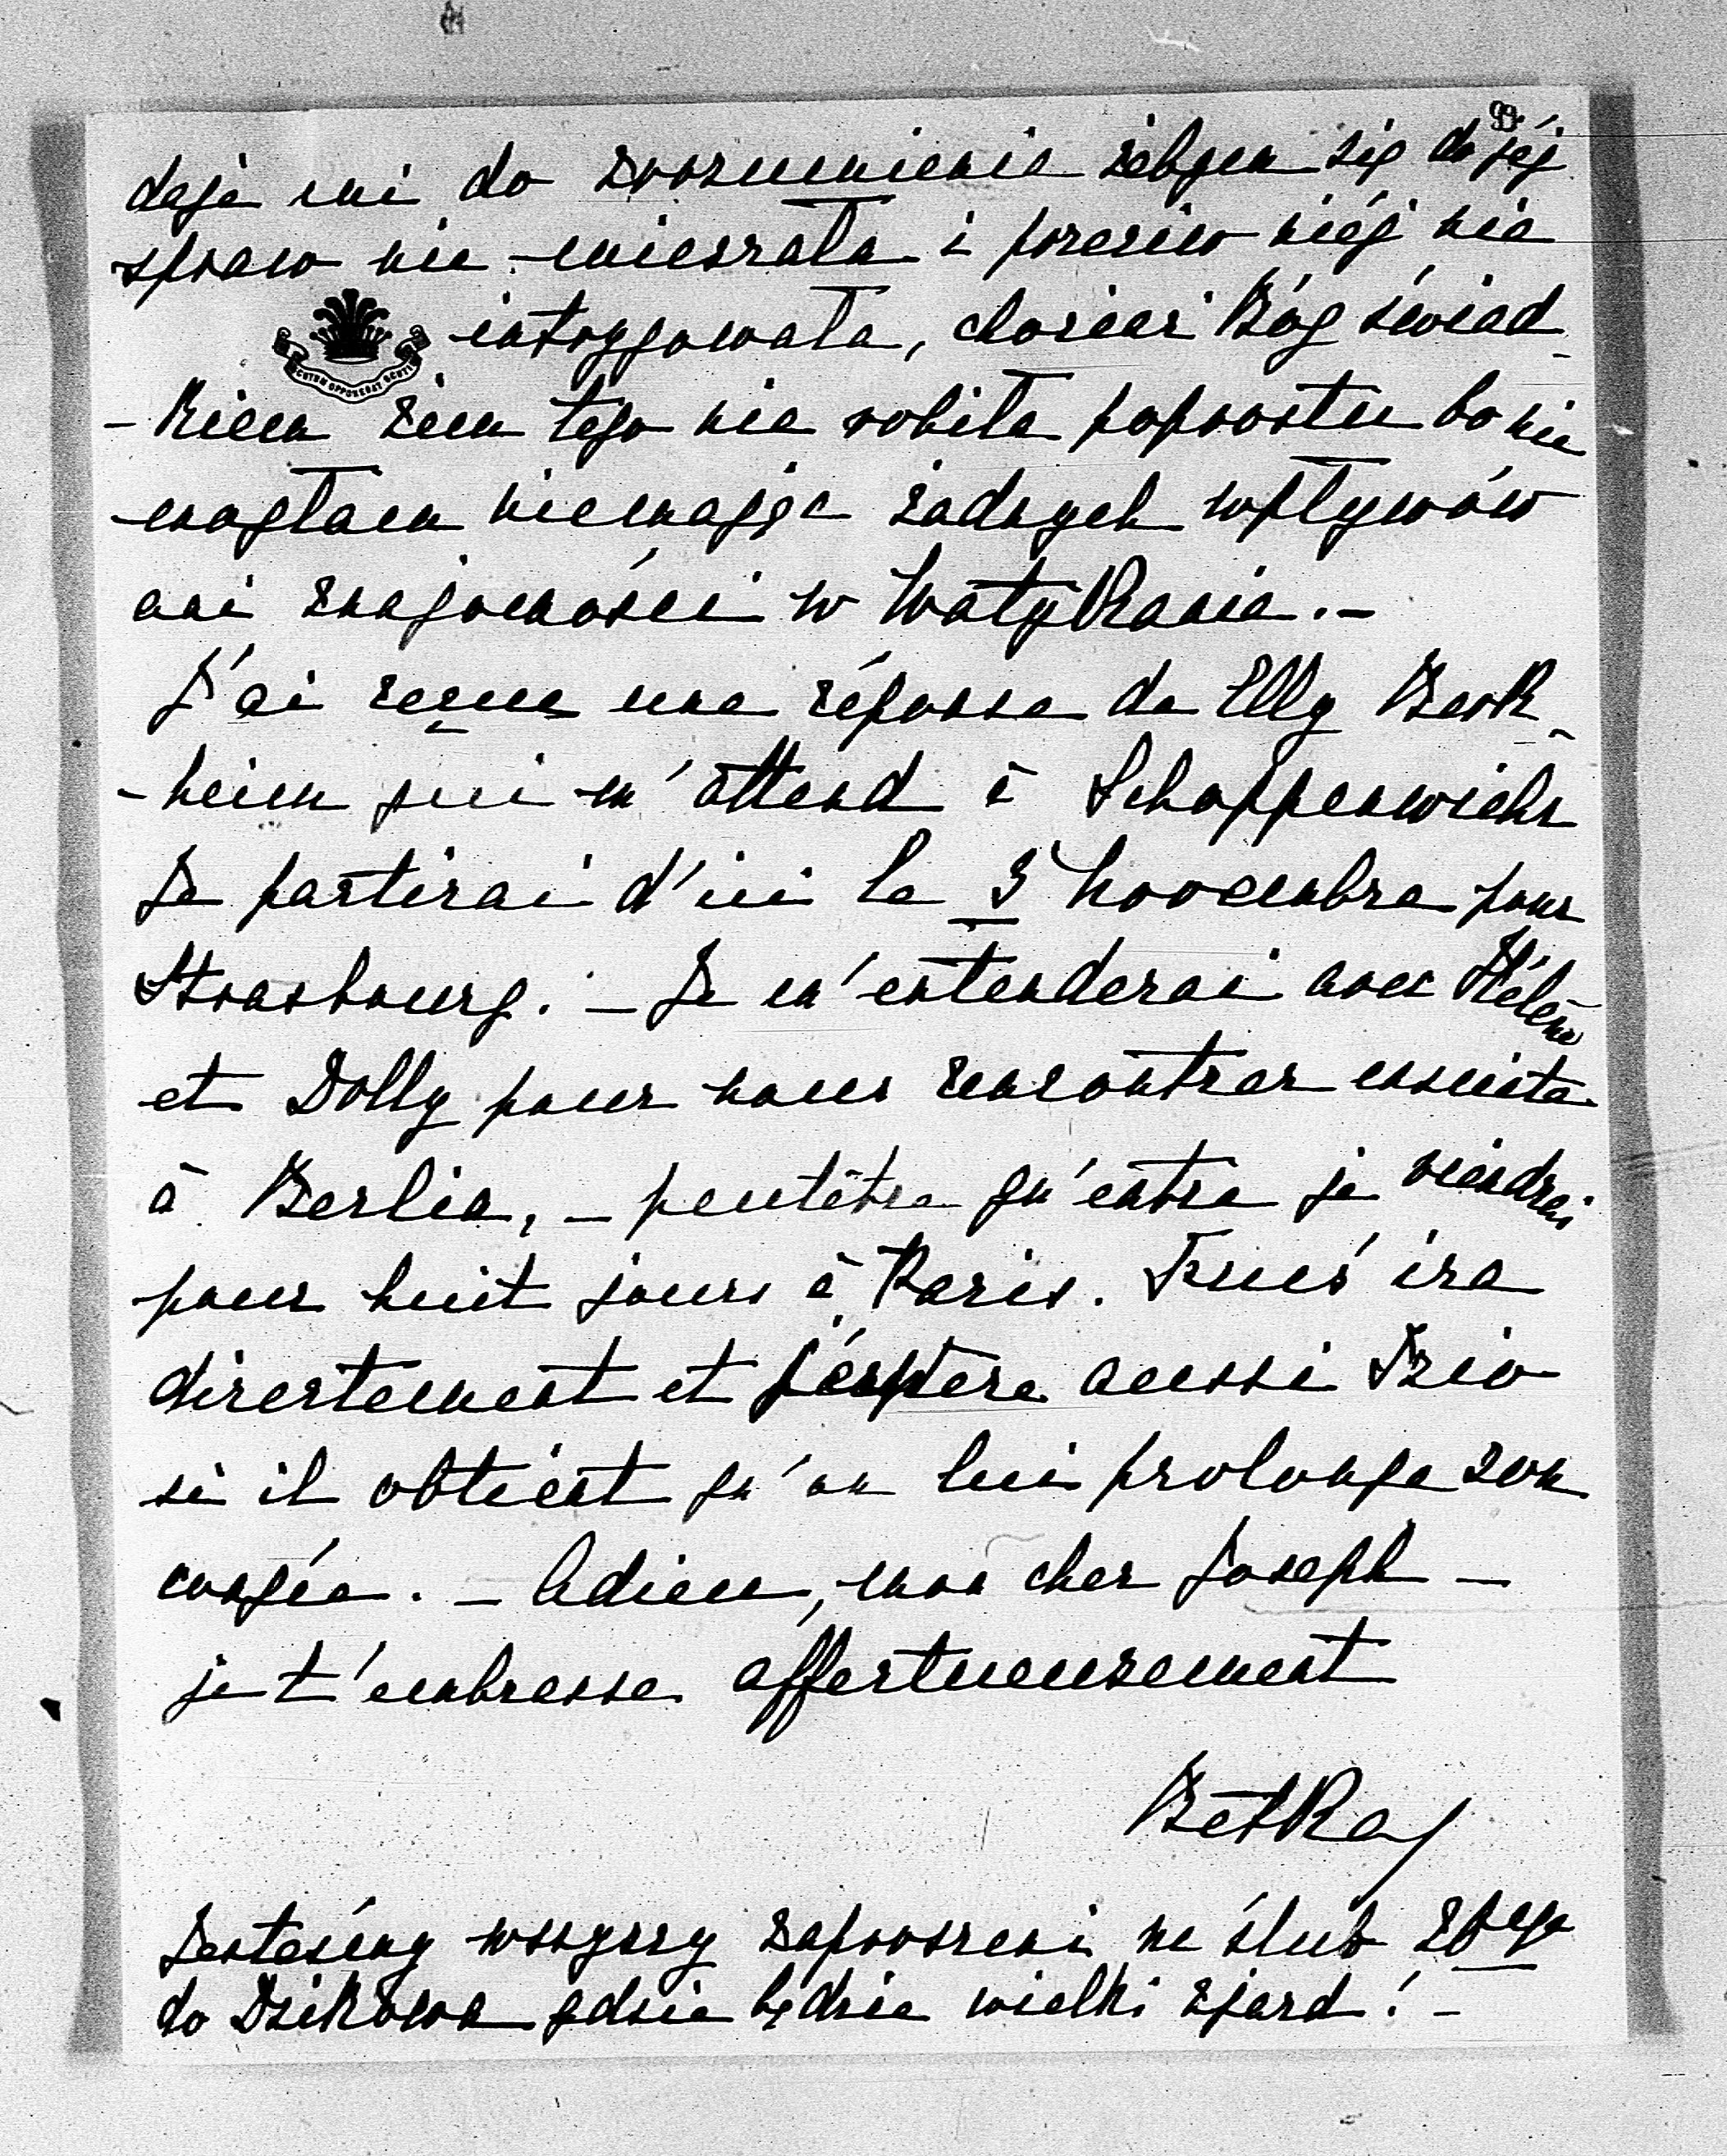 99
daje mi do zrozumienia żebym się do jéj
spraw nie mieszała i przeciw niéj nie
intrygowała, chociaż Bóg świad-
-kiem żem tego nie robiła poprostu bo nie
mogłam niemając żadnych wpływów
ani znajomości w Watykanie. –
J'ai reçue une réponse de Elly Berk-
-heim qui m'attend à Schoppenwiehr
Je partirai d'ici le 3 Novembre pour
Strasbourg. – Je m'entenderai avec Hélène
et Dolly pour nous rencontrer ensuite
à Berlin, – peutêtre qu'entre je viendrai
pour huit jours à Paris. ira
directement et j'éspère aussi
si il obtient qu'on lui prolonge son
congée. – Adieu, mon cher Joseph –
je t'embrasse affectueusement
Betka
Jesteśmy wszyscy zaproszeni na ślub
do Dzikowa gdzie będzie wielki zjazd! –